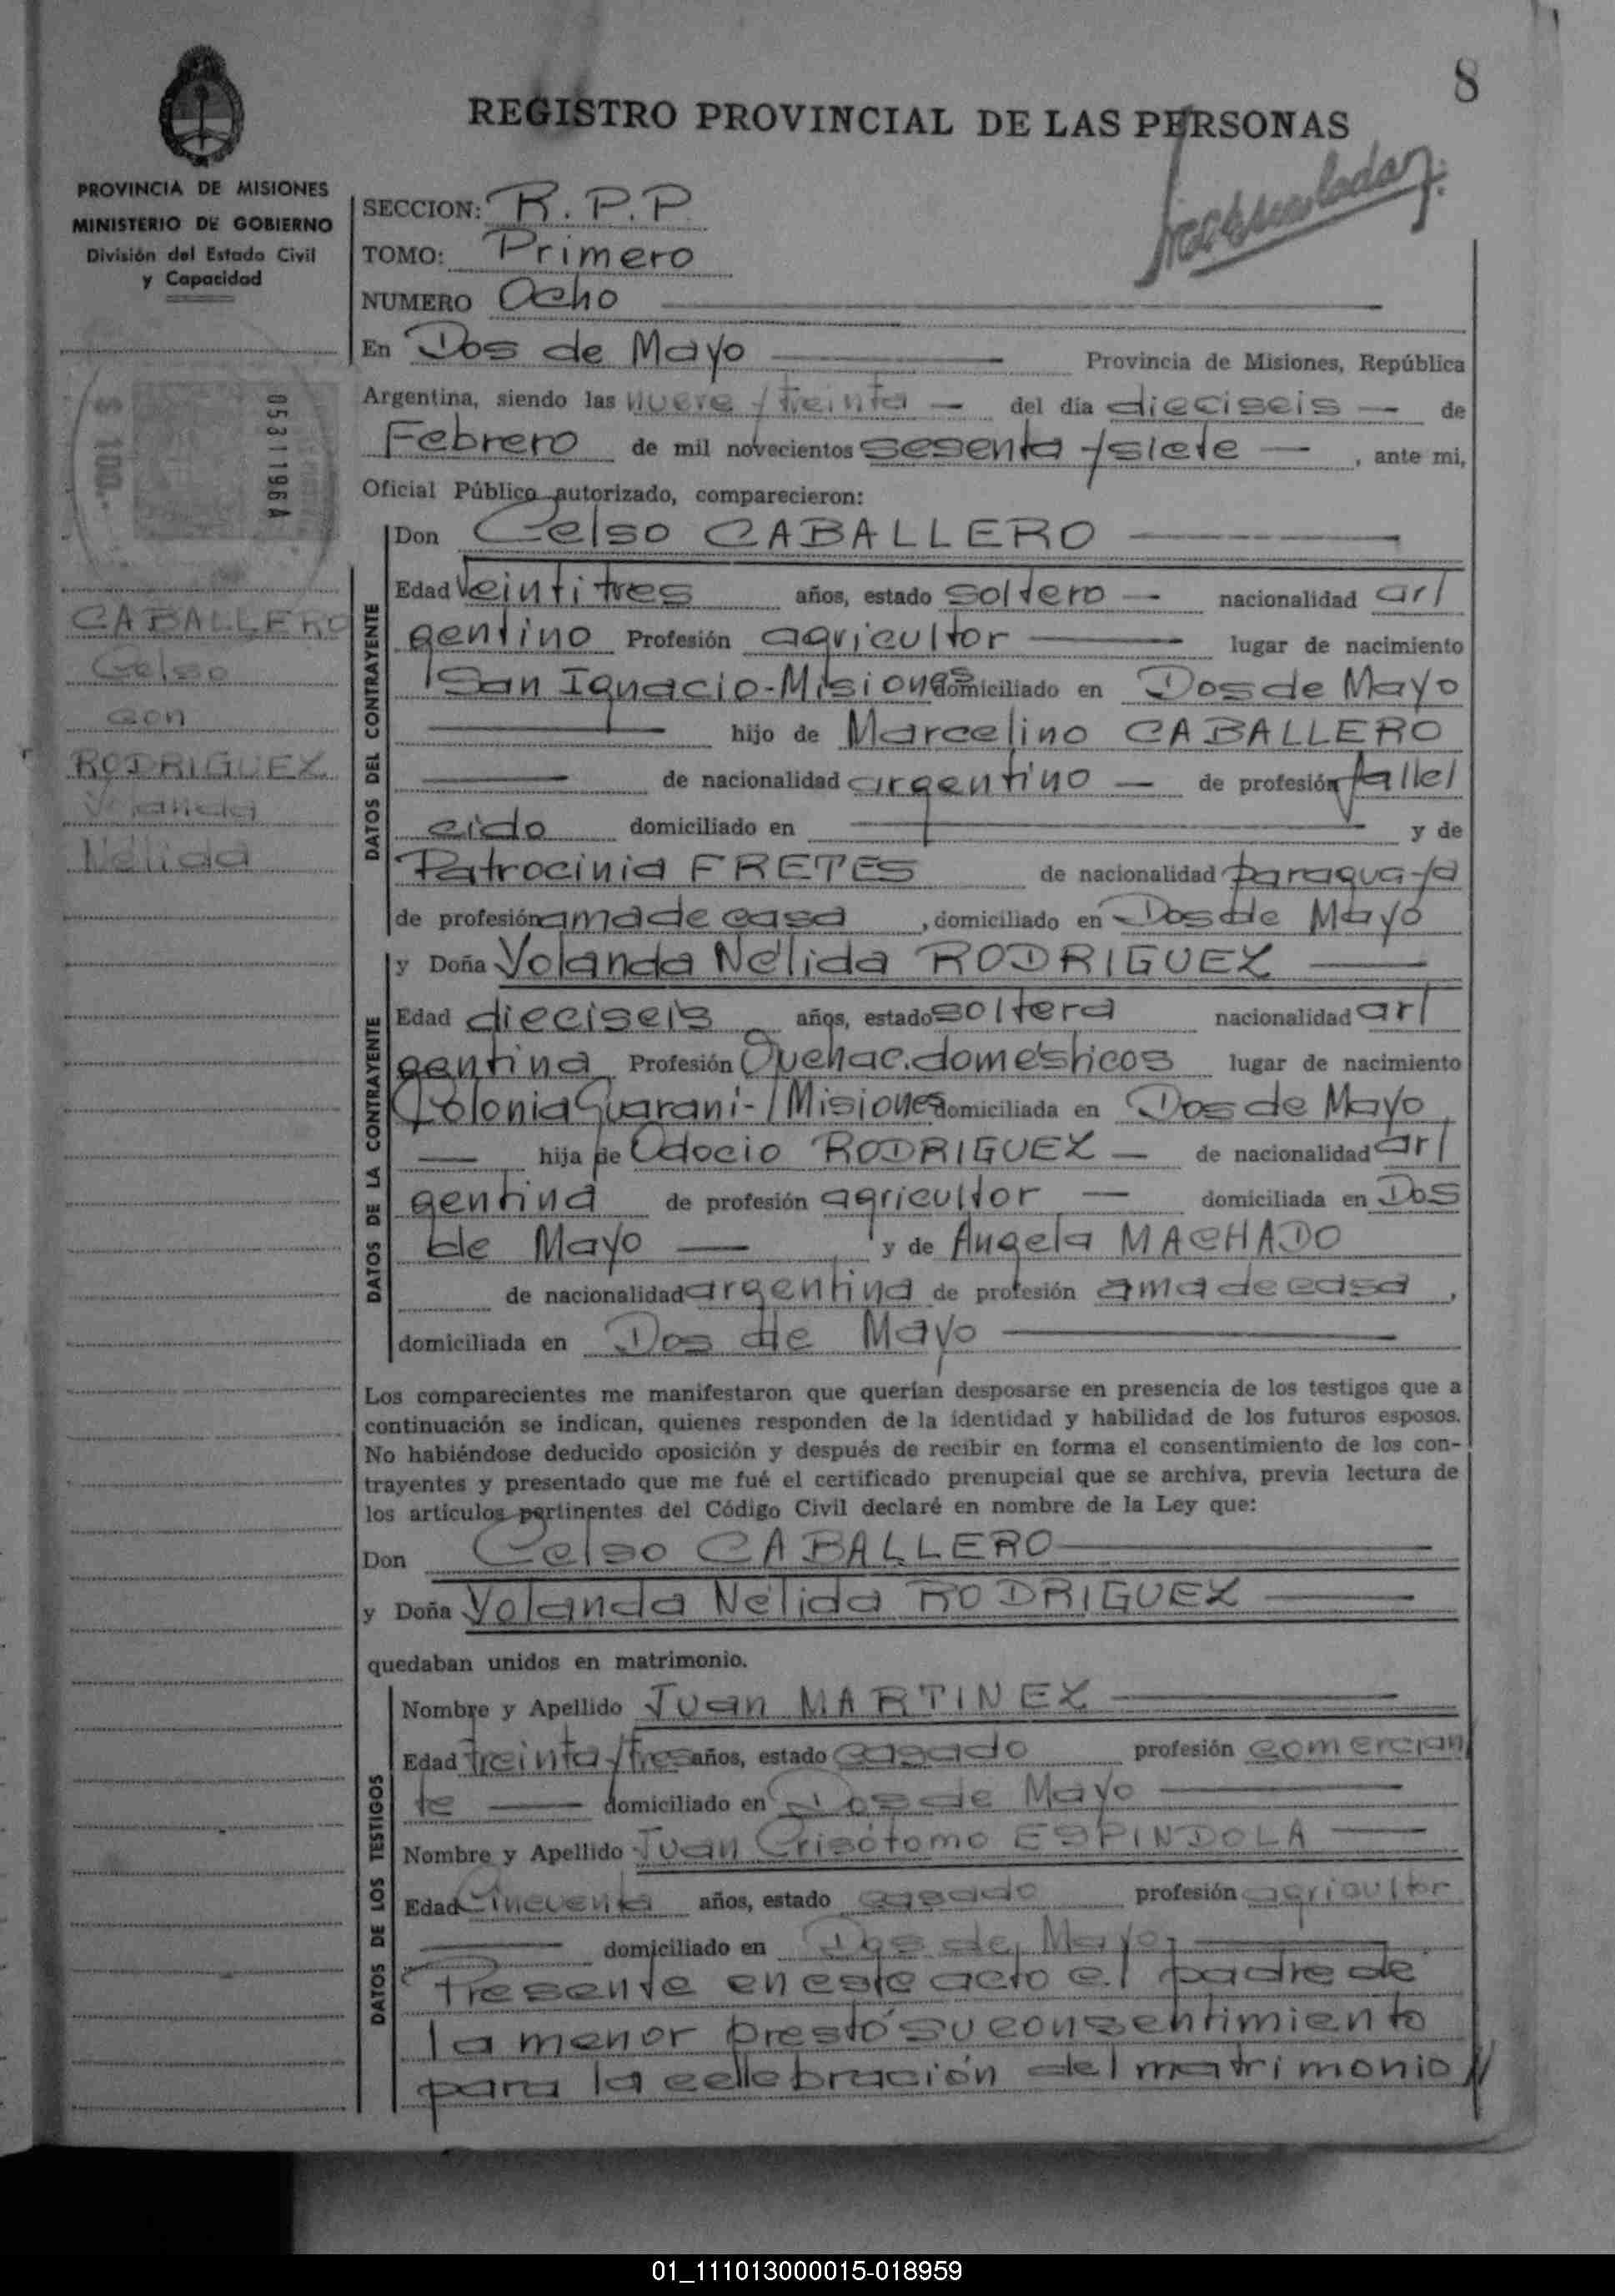 8
REGISTRO PROVINCIAL DE LAS PERSONAS
PROVINCIA DE MISIONES
MINISTERIO DE GOBIERNO
División del Estado Civil
y Capacidad
SECCION: R.P.P
TOMO: Primero
NUMERO Ocho
En Dos de Mayo Provincia de Misiones, República
Argentina, siendo las nueve y treinta del día dieciseis de
Febrero de mil novecientos sesenta y siete, ante mi,
Oficial Público autorizado, comparecieron:
$ 100.-
0531196 A
CABALLERO
Celso
con
RODRIGUEZ
Yolanda
Nélida
DATOS DEL CONTRAYENTE
Don Celso CABALLERO
Edad Veintitres años, estado soltero nacionalidad ar/
gentino Profesión agricultor lugar de nacimiento
San Ignacio-Misiones domiciliado en Dos de Mayo
hijo de Marcelino CABALLERO
de nacionalidad argentino de profesión falle/
cido domiciliado en y de
Patrocinia FRETES de nacionalidad paraguaya
de profesión ama de casa, domiciliado en Dos de Mayo
DATOS DE LA CONTRAYENTE
y Doña Yolanda Nélida RODRIGUEZ
Edad dieciseis años, estado soltera nacionalidad ar/
gentina Profesión Quehac. domésticos lugar de nacimiento
Colonia Guaraní-/Misiones domiciliada en Dos de Mayo
hija de Odocio RODRIGUEZ de nacionalidad ar/
gentina de profesión agricultor domiciliada en Dos
de Mayo y de Angela MACHADO
de nacionalidad argentina de profesión ama de casa,
domiciliada en Dos de Mayo
Los comparecientes me manifestaron que querían desposarse en presencia de los testigos que a
continuación se indican, quienes responden de la identidad y habilidad de los futuros esposos.
No habiéndose deducido oposición y después de recibir en forma el consentimiento de los con-
trayentes y presentado que me fué el certificado prenupcial que se archiva, previa lectura de
los artículos pertinentes del Código Civil declaré en nombre de la Ley que:
Don Celso CABALLERO
y Doña Yolanda Nélida RODRIGUEZ
quedaban unidos en matrimonio.
DATOS DE LOS TESTIGOS
Nombre y Apellido Juan MARTINEZ
Edad treinta y tres años, estado casado profesión comercian
te domiciliado en Dos de Mayo
Nombre y Apellido Juan Crisótomo ESPINDOLA
Edad Cincuenta años, estado casado profesión agricultor
domiciliado en Dos de Mayo
Presente en este acto el padre de
la menor prestó su consentimiento
para la cellebración del matrimonio
01_111013000015-018959